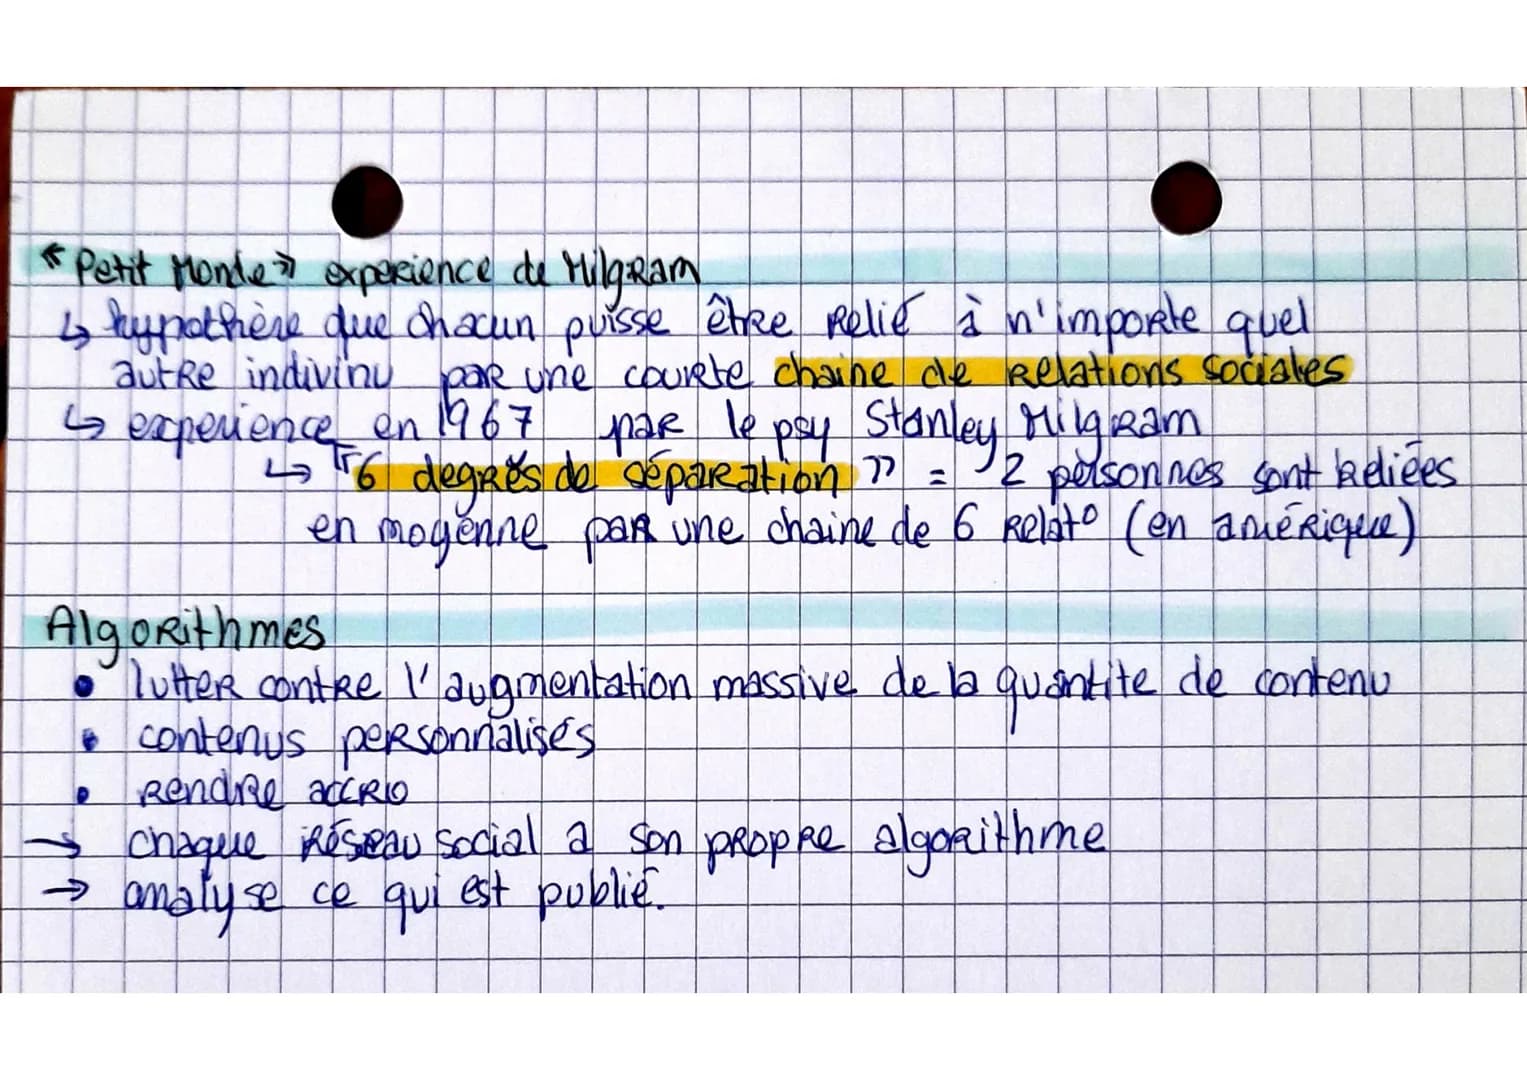 « Petit Monde » experience de Milgram
↳ hypothèse que chacun puisse être relié à n'importe quel
autre indivinu par une courte chaine de relations sociales
↳ experience en 1967 par le psy Stanley Milgram
↳ "6 degrés de séparation" = 2 personnes sont reliées
en moyenne par une chaine de 6 relat° (en amérique)
Algorithmes
• lutter contre l'augmentation massive de la quantite de contenu
• contenus personnalisés
• rendre accro
→ chaque réseau social a son propre algorithme
→ analyse ce qui est publié.